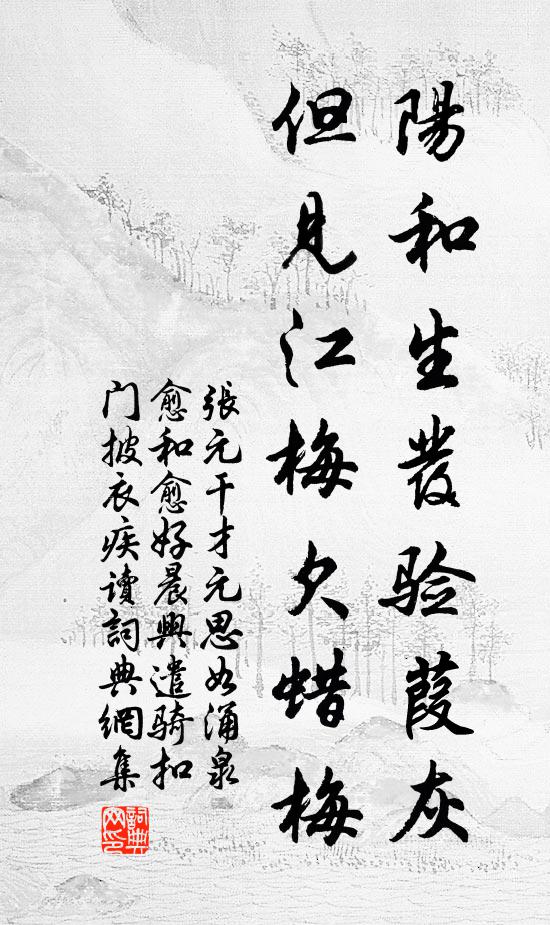 陽和生發验葭灰
但見江梅欠蜡梅
張元干才元思如涌泉
愈和愈好晨興遣骑扣
门披衣疾讀詞典網集
詞典
网印